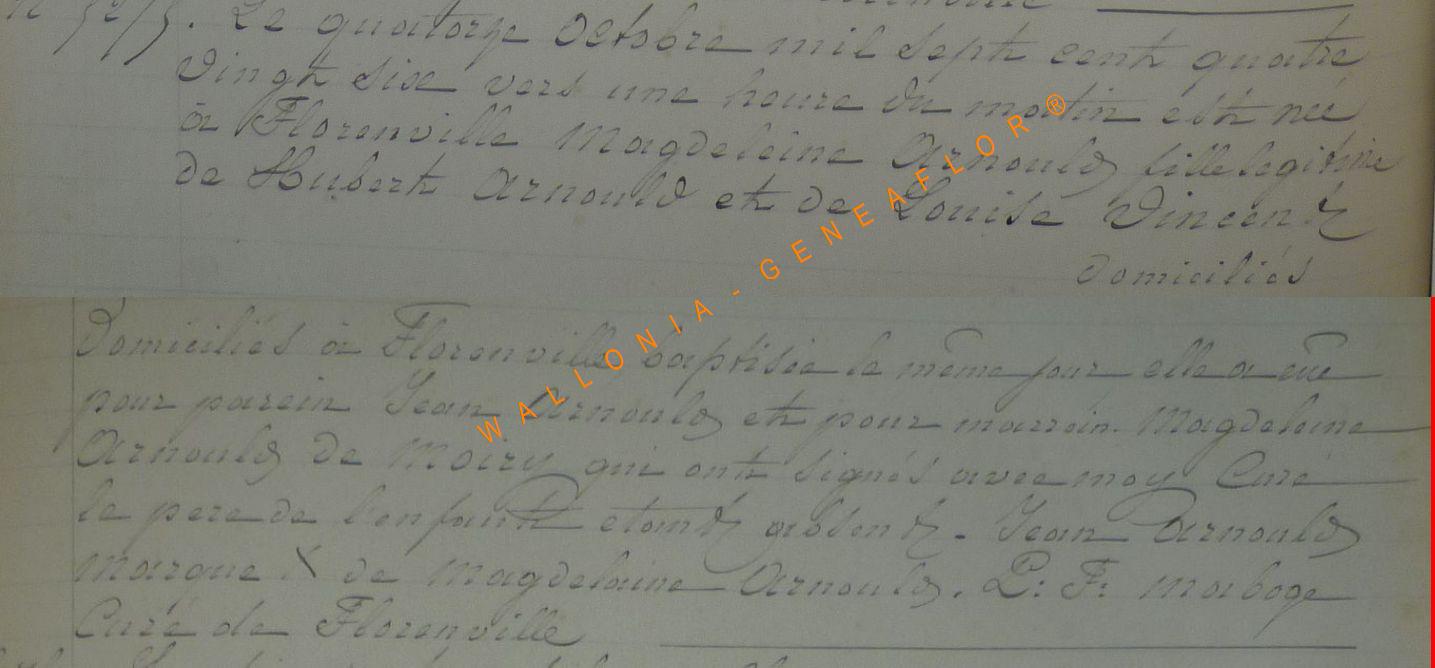 Le quatorze octobre mil sept cent quatre
vingt six vers une heure du matin est née
à Florenville Magdeleine Arnould fille legitime
de Hubert Arnould et de Louise Vincent
domiciliés
Domiciliés à Florenville baptisée le même jour elle a eue
pour parein Jean Arnould et pour marrein Magdelaine
Arnould de Moiry qui ont signés avec moy Curé
le pere de l'enfant etant absent. Jean Arnould
marque X de Magdelaine Arnould. P: F: Maboge
Curé de Florenville
WALLONIA - GENEAFLOR®